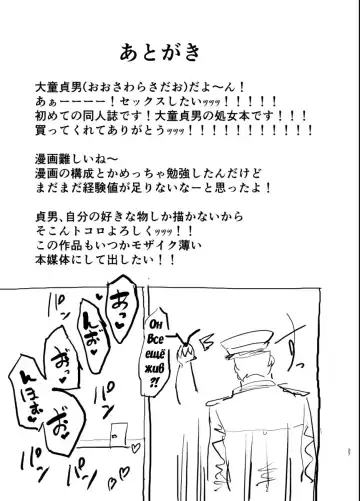 あとがき
大童貞男(おおさわらさだお)だよ〜ん！
あぁーーーー！セックスしたいｯｯｯ！！！！！
初めての同人誌です！大童貞男の処女本です！！！
買ってくれてありがとうｯｯｯ！！！！！！！！！！！
漫画難しいね〜
漫画の構成とかめっちゃ勉強したんだけど
まだまだ経験値が足りないなーと思ったよ！
貞男、自分の好きな物しか描かないから
そこんトコロよろしくｯｯｯ！！
この作品もいつかモザイク薄い
本媒体にして出したい！！
パン
パン
あっ♥
んお♥
お♥
んほお♥
お♥
パン
パン
Он
Все
ещё
жив
?!